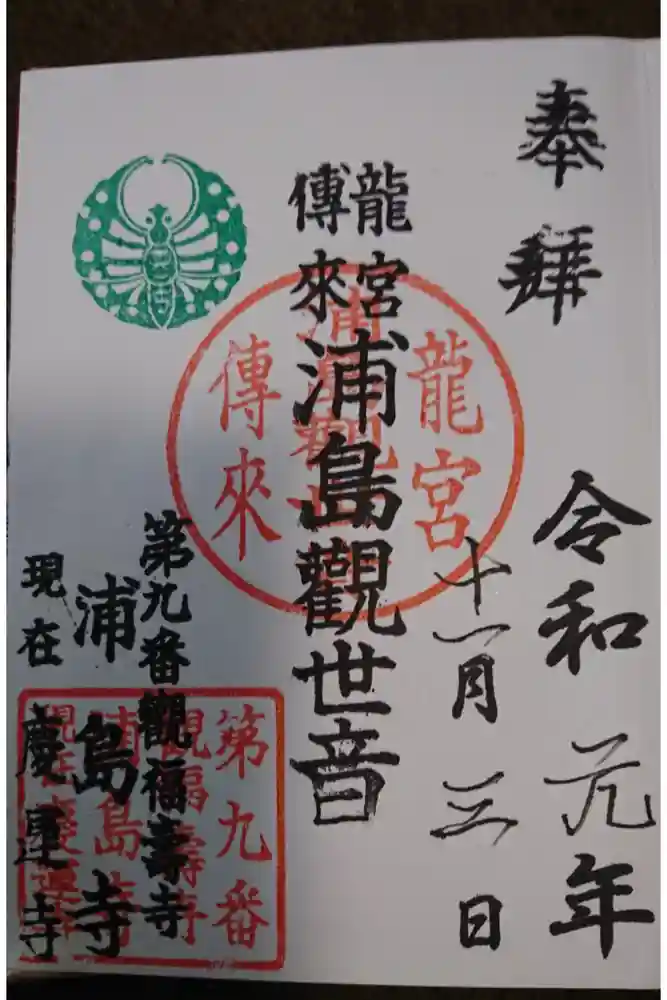 奉拜
令和元年
十一月三日
龍宮
傳來
浦島觀世音
龍宮
浦島觀世
傳來
第九番觀福壽寺
浦島寺
現在慶運寺
第九番
觀福壽寺
浦島寺
現在慶運寺